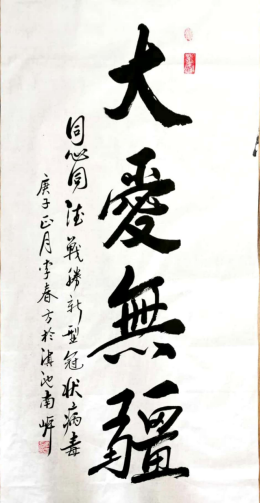 大愛無疆
同心同德戰勝新型冠狀病毒
庚子正月李春方於滇池南岸